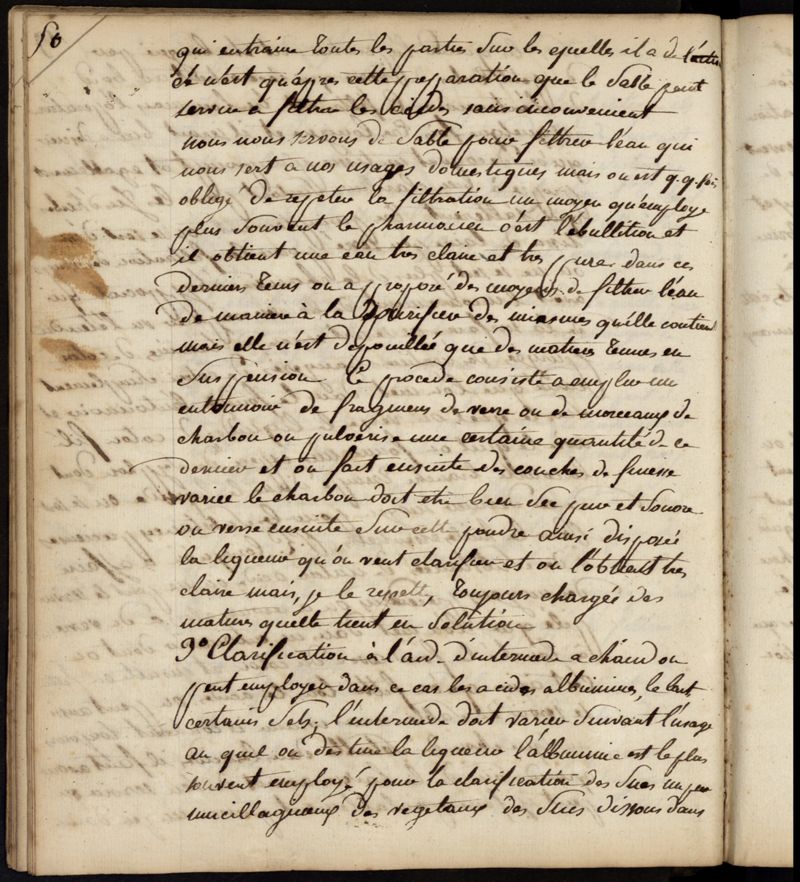 50
qui entraine toutes les parties sur les quelles il a de l'action
ce n'est qu'apres cette preparation que le sable peut
servir a filtrer les acides sans inconvenient
nous nous servons de sable pour filtrer l'eau qui
nous sert a nos usages domestiques mais on est q.q.fois
obligé de repeter la filtration un moyen qu'employe
plus souvent le pharmacien c'est l'ébullition et
il obtient une eau tres claire et tres pure dans ces
derniers tems on a proposé des moyens de filtrer l'eau
de maniere à la dépurifier des miasmes qu'elle contient
mais elle n'est depouillée que des matieres tenues en
suspension Ce procedé consiste a emplir un
entonnoir de fragmens de verre ou de morceaux de
charbon on pulverise une certaine quantité de ce
dernier et on fait ensuite des couches de finesse
variée le charbon doit etre bien sec pur et sonore
on verse ensuite sur cette poudre ainsi disposée
la liqueur qu'on veut clarifier et on l'obtient tres
claire mais, je le repette, toujours chargée des
matieres quelle tient en solution
3º Clarification à l'aide d'intermede a chaud on
peut employer dans ce cas les acides albumine, le lait
certains sels, l'intermede doit varier suivant l'usage
au quel on destine la liqueur l'albumine est le plus
souvent employé pour la clarification des sucs un peu
mucillagineux des vegetaux des sucs dissous dans